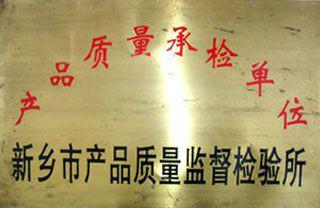 产品质量承检单位
新乡市产品质量监督检验所